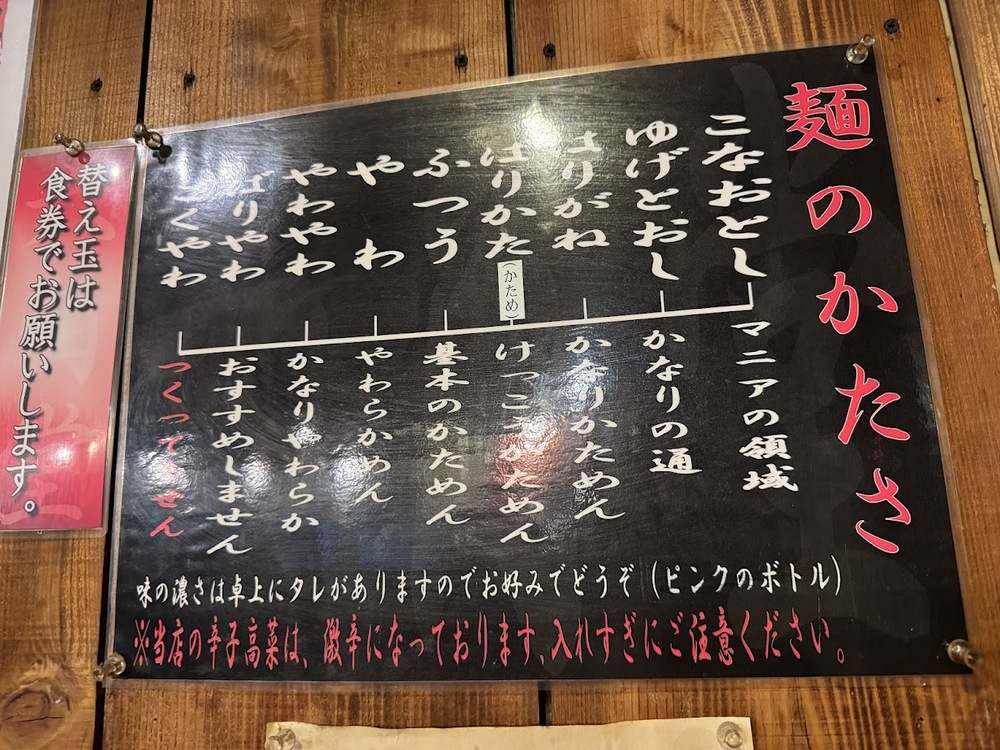 麺のかたさ
こなおとし
マニアの領域
ゆげどおし
かなりの通
はりがね
かなりかためん
はりかた
(かため)
けっこうかためん
ふつう
基本のかためん
やわ
やわらかめん
やわやわ
かなりやわらか
ばりやわ
おすすめしません
ごくやわ
つくってません
味の濃さは卓上にタレがありますのでお好みでどうぞ(ピンクのボトル)
※当店の辛子高菜は、激辛になっております、入れすぎにご注意ください。
替え玉は
食券でお願いします。